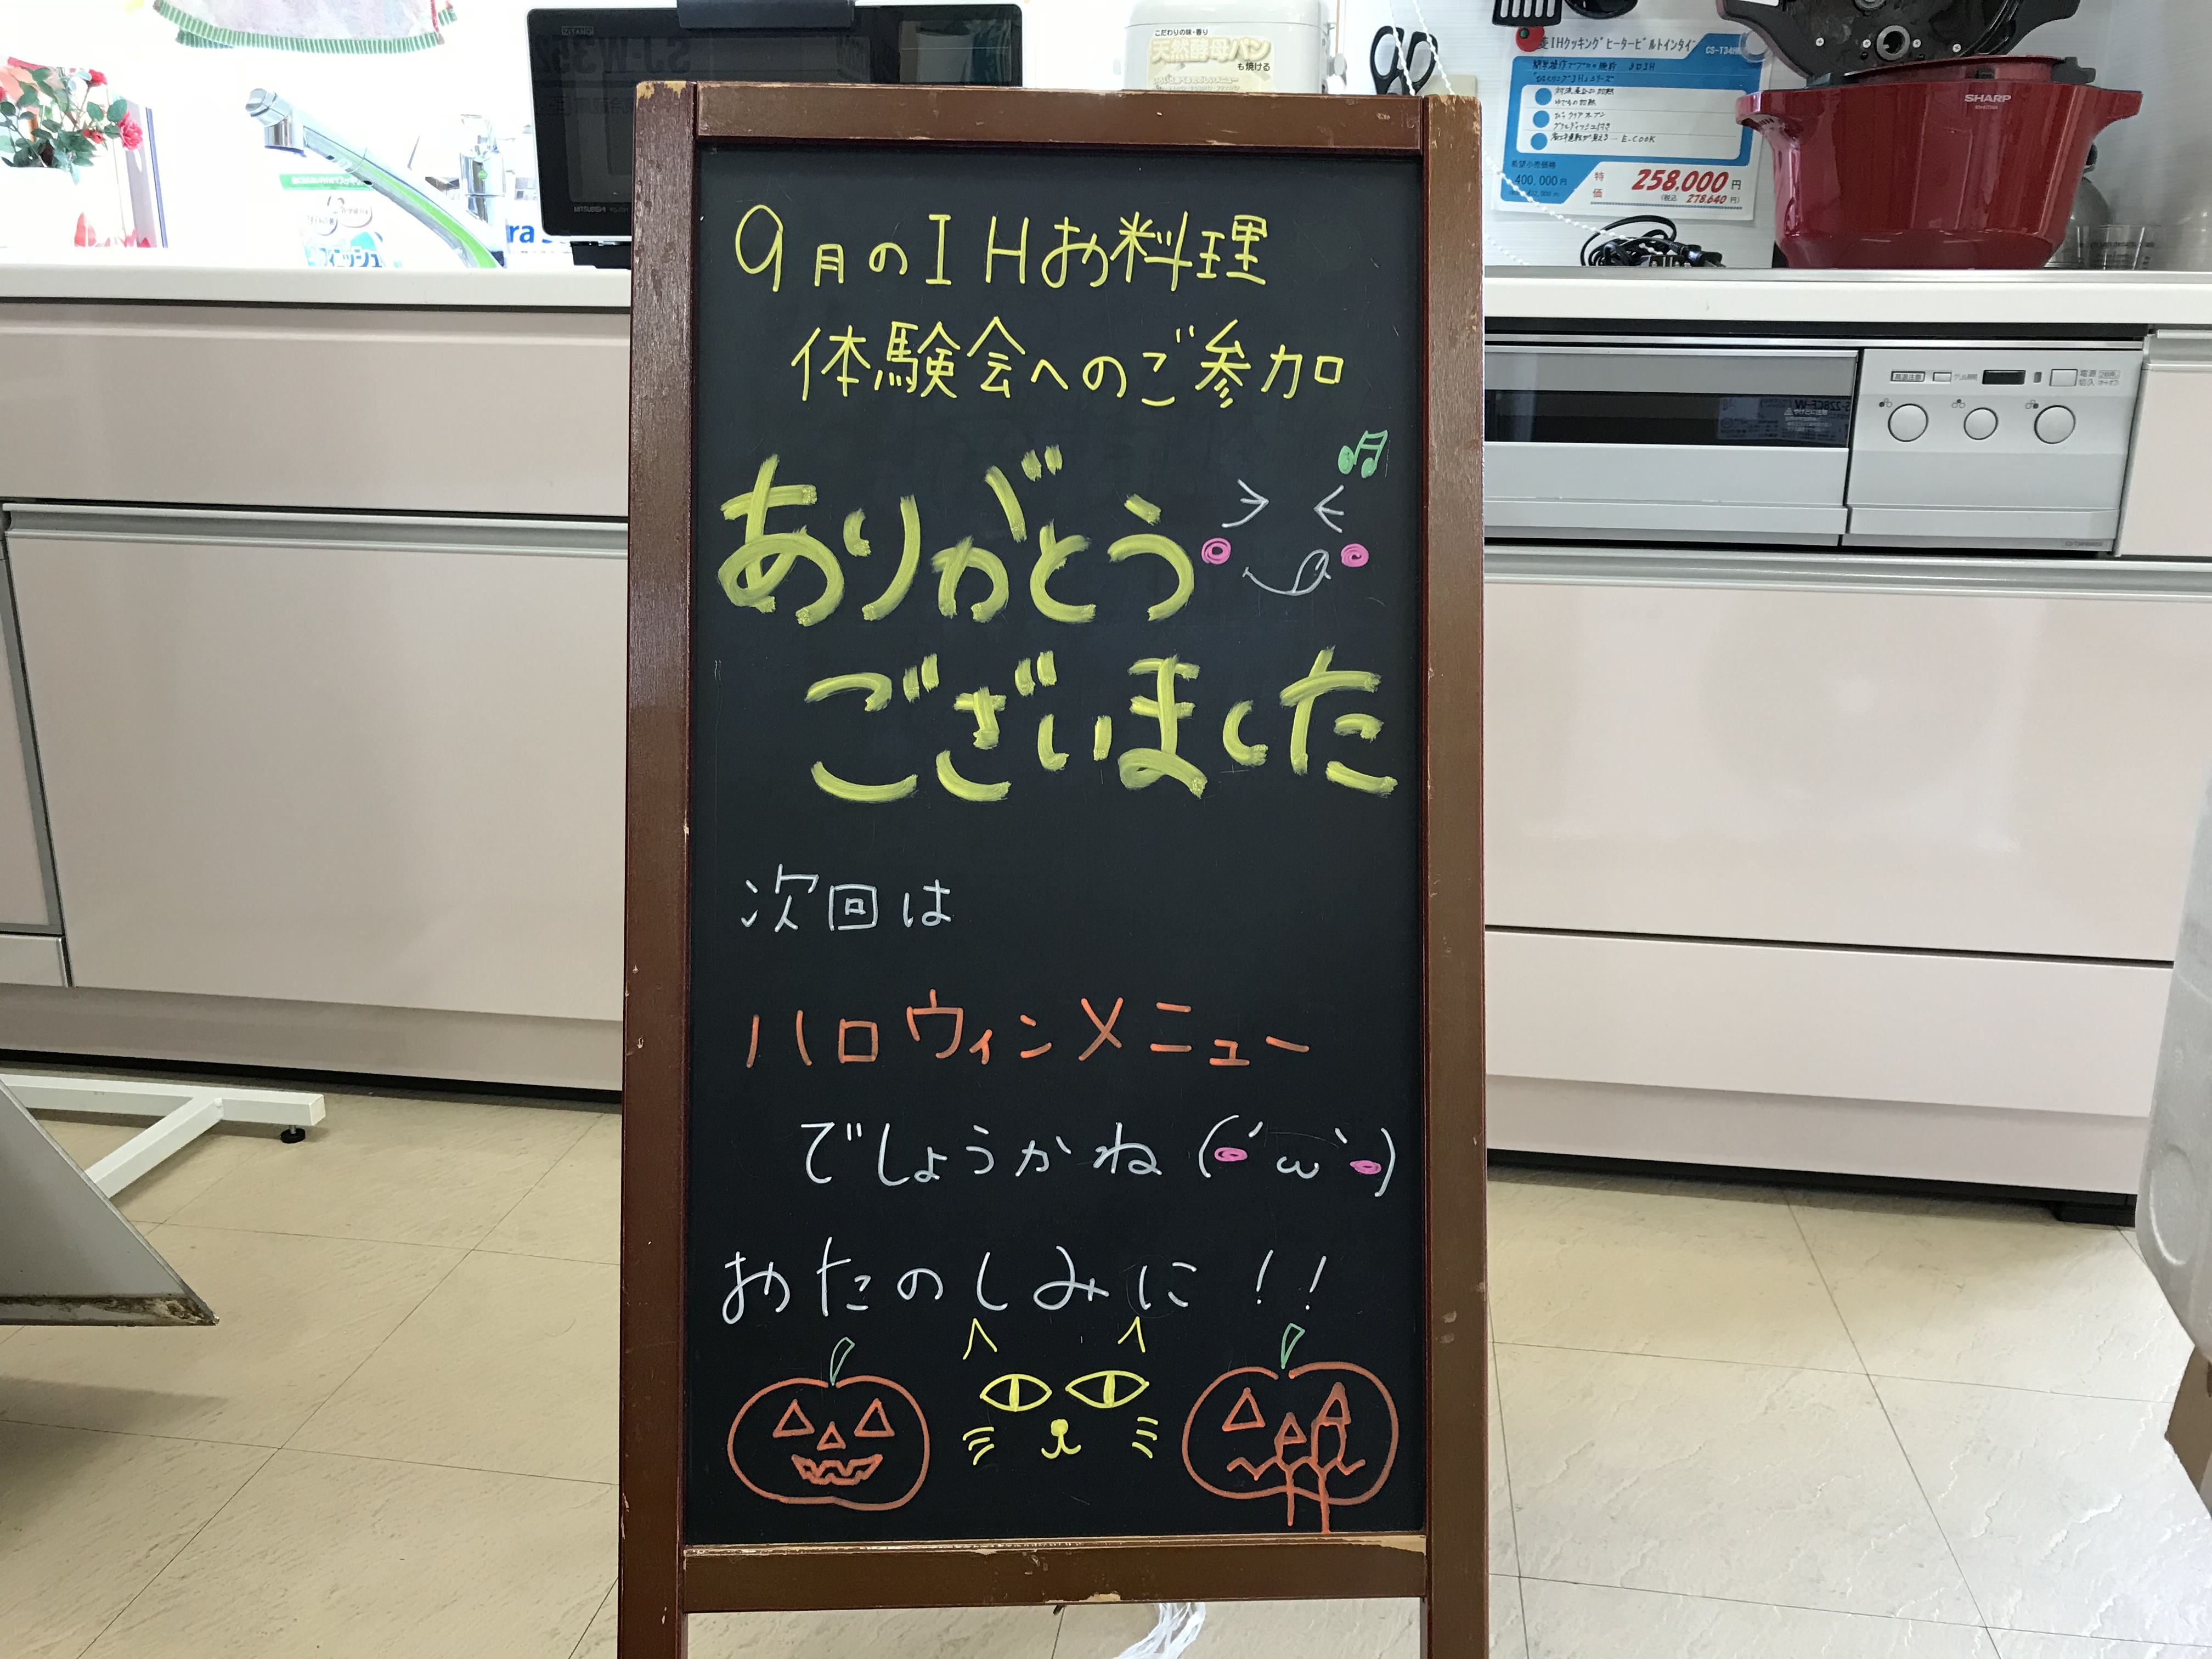 こだわりの味・香り
天然酵母パン
も焼ける
IHクッキングヒータービルトインタイ
CS-T34H
希望小売価格
400,000円
特価
258,000円
(税込 278,640円)
SHARP
9月のIHお料理
体験会へのご参加
ありがとう
ございました
次回は
ハロウィンメニュー
でしょうかね(´ω`)
おたのしみに!!